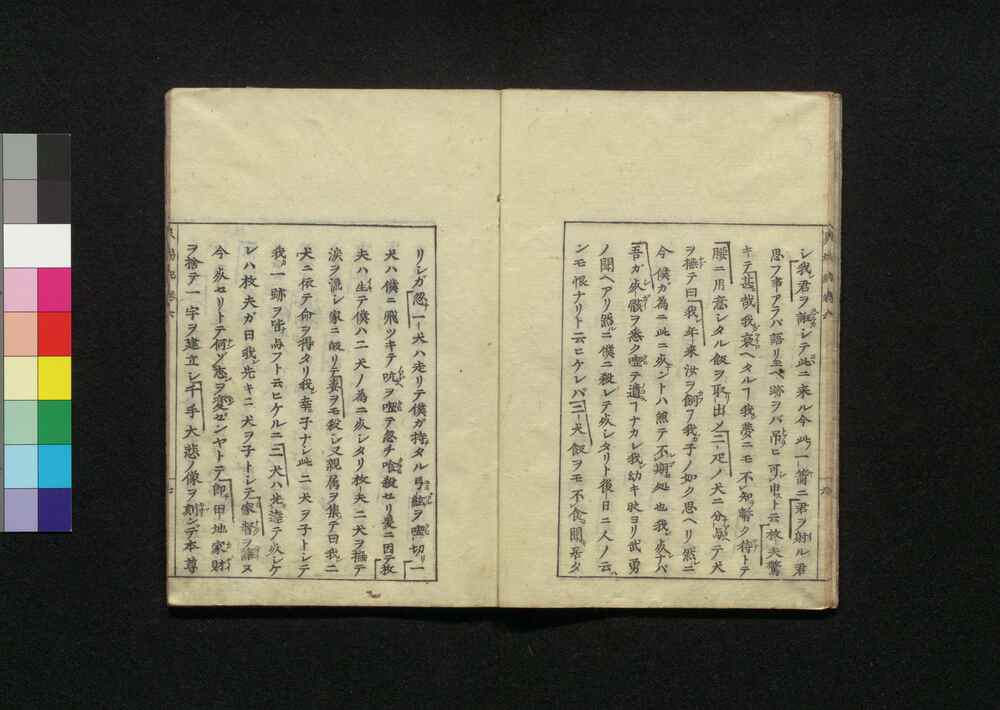 シ我君ヲ謝シテ此ニ来ル今此ノ一箭ニ君ヲ射ル君
思フ事アラバ語リ玉ヘ跡ヲバ吊ヒ可申ト云枚夫驚
キテ哉我衰ヘタルヿ我夢ニモ不知暫ク待トテ
腰ニ用意シタル飯ヲ取出シ二疋ノ犬ニ分与テ犬
ヲ撫テ曰我年来汝ヲ飼フ我子ノ如ク思ヘリ然ニ
今僕ガ為ニ此ニ死ントハ無テ不期処也我死ナバ
吾ガ死骸ヲ悉ク喰テ遺ヿナカレ我幼キ時ヨリ武勇
ノ聞ヘアリ然ニ僕ニ殺レテ死シタリト後日ニ人ノ云
ンモ恨ナリト云ヒケレバ二犬飯ヲモ不食聞居タ
リシガ忽一犬ハ走リテ僕ガ持タル弓絃ヲ喰切リ一
犬ハ僕ニ飛ツキテ吭ヲ喰テ忽チ喰殺セリ爰ニ因テ枚
夫ハ生テ僕ハ二犬ノ為ニ死シタリ枚夫二犬ヲ撫テ
涙ヲ流シ家ニ皈リテ妻ヲモ殺シ又親属ヲ集テ曰我二
犬ニ依テ命ヲ得タリ我幸子ナシ此二犬ヲ子トシテ
我一跡ヲ皆与フト云ヒケルニ二犬ハ先達テ死シケ
レハ枚夫ガ曰我先キニ犬ヲ子トシテ家督ヲ譲ス
今死セリトテ何ソ志ヲ変ゼンヤトテ即田地家財
ヲ捨テ一宇ヲ建立シ千手大悲ノ像ヲ刻シテ本尊